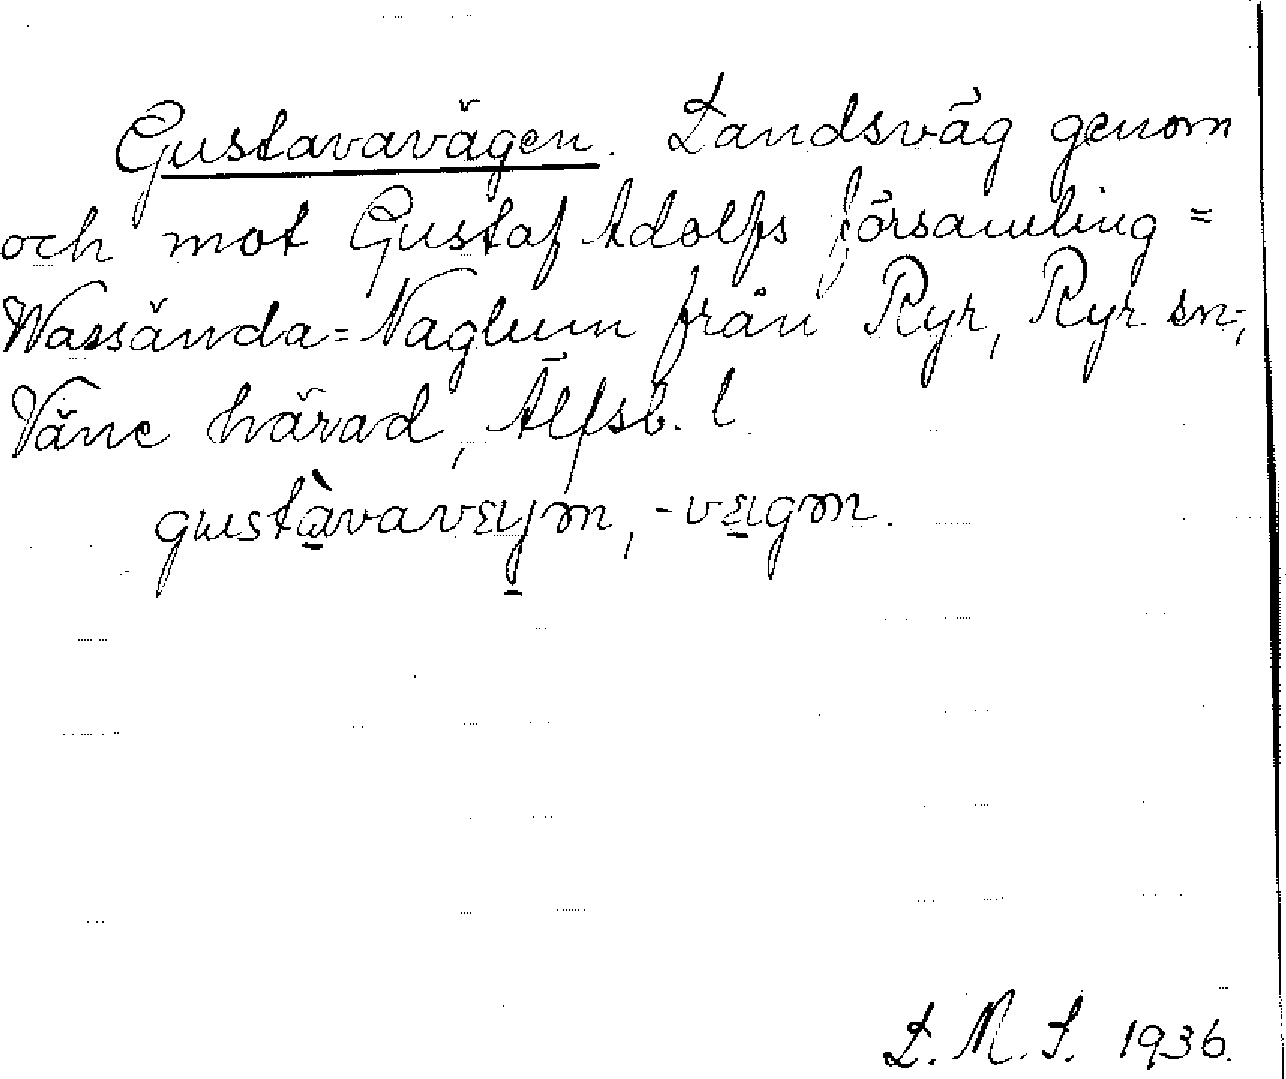 Gustavavägen. Landsväg genom
och mot Gustaf Adolfs församling =
Wassända=Naglum från Ryr, Ryr sn,
Väne härad, Älfsb. l
gustàvavɛyən, -vɛigən.
L. M. S. 1936.